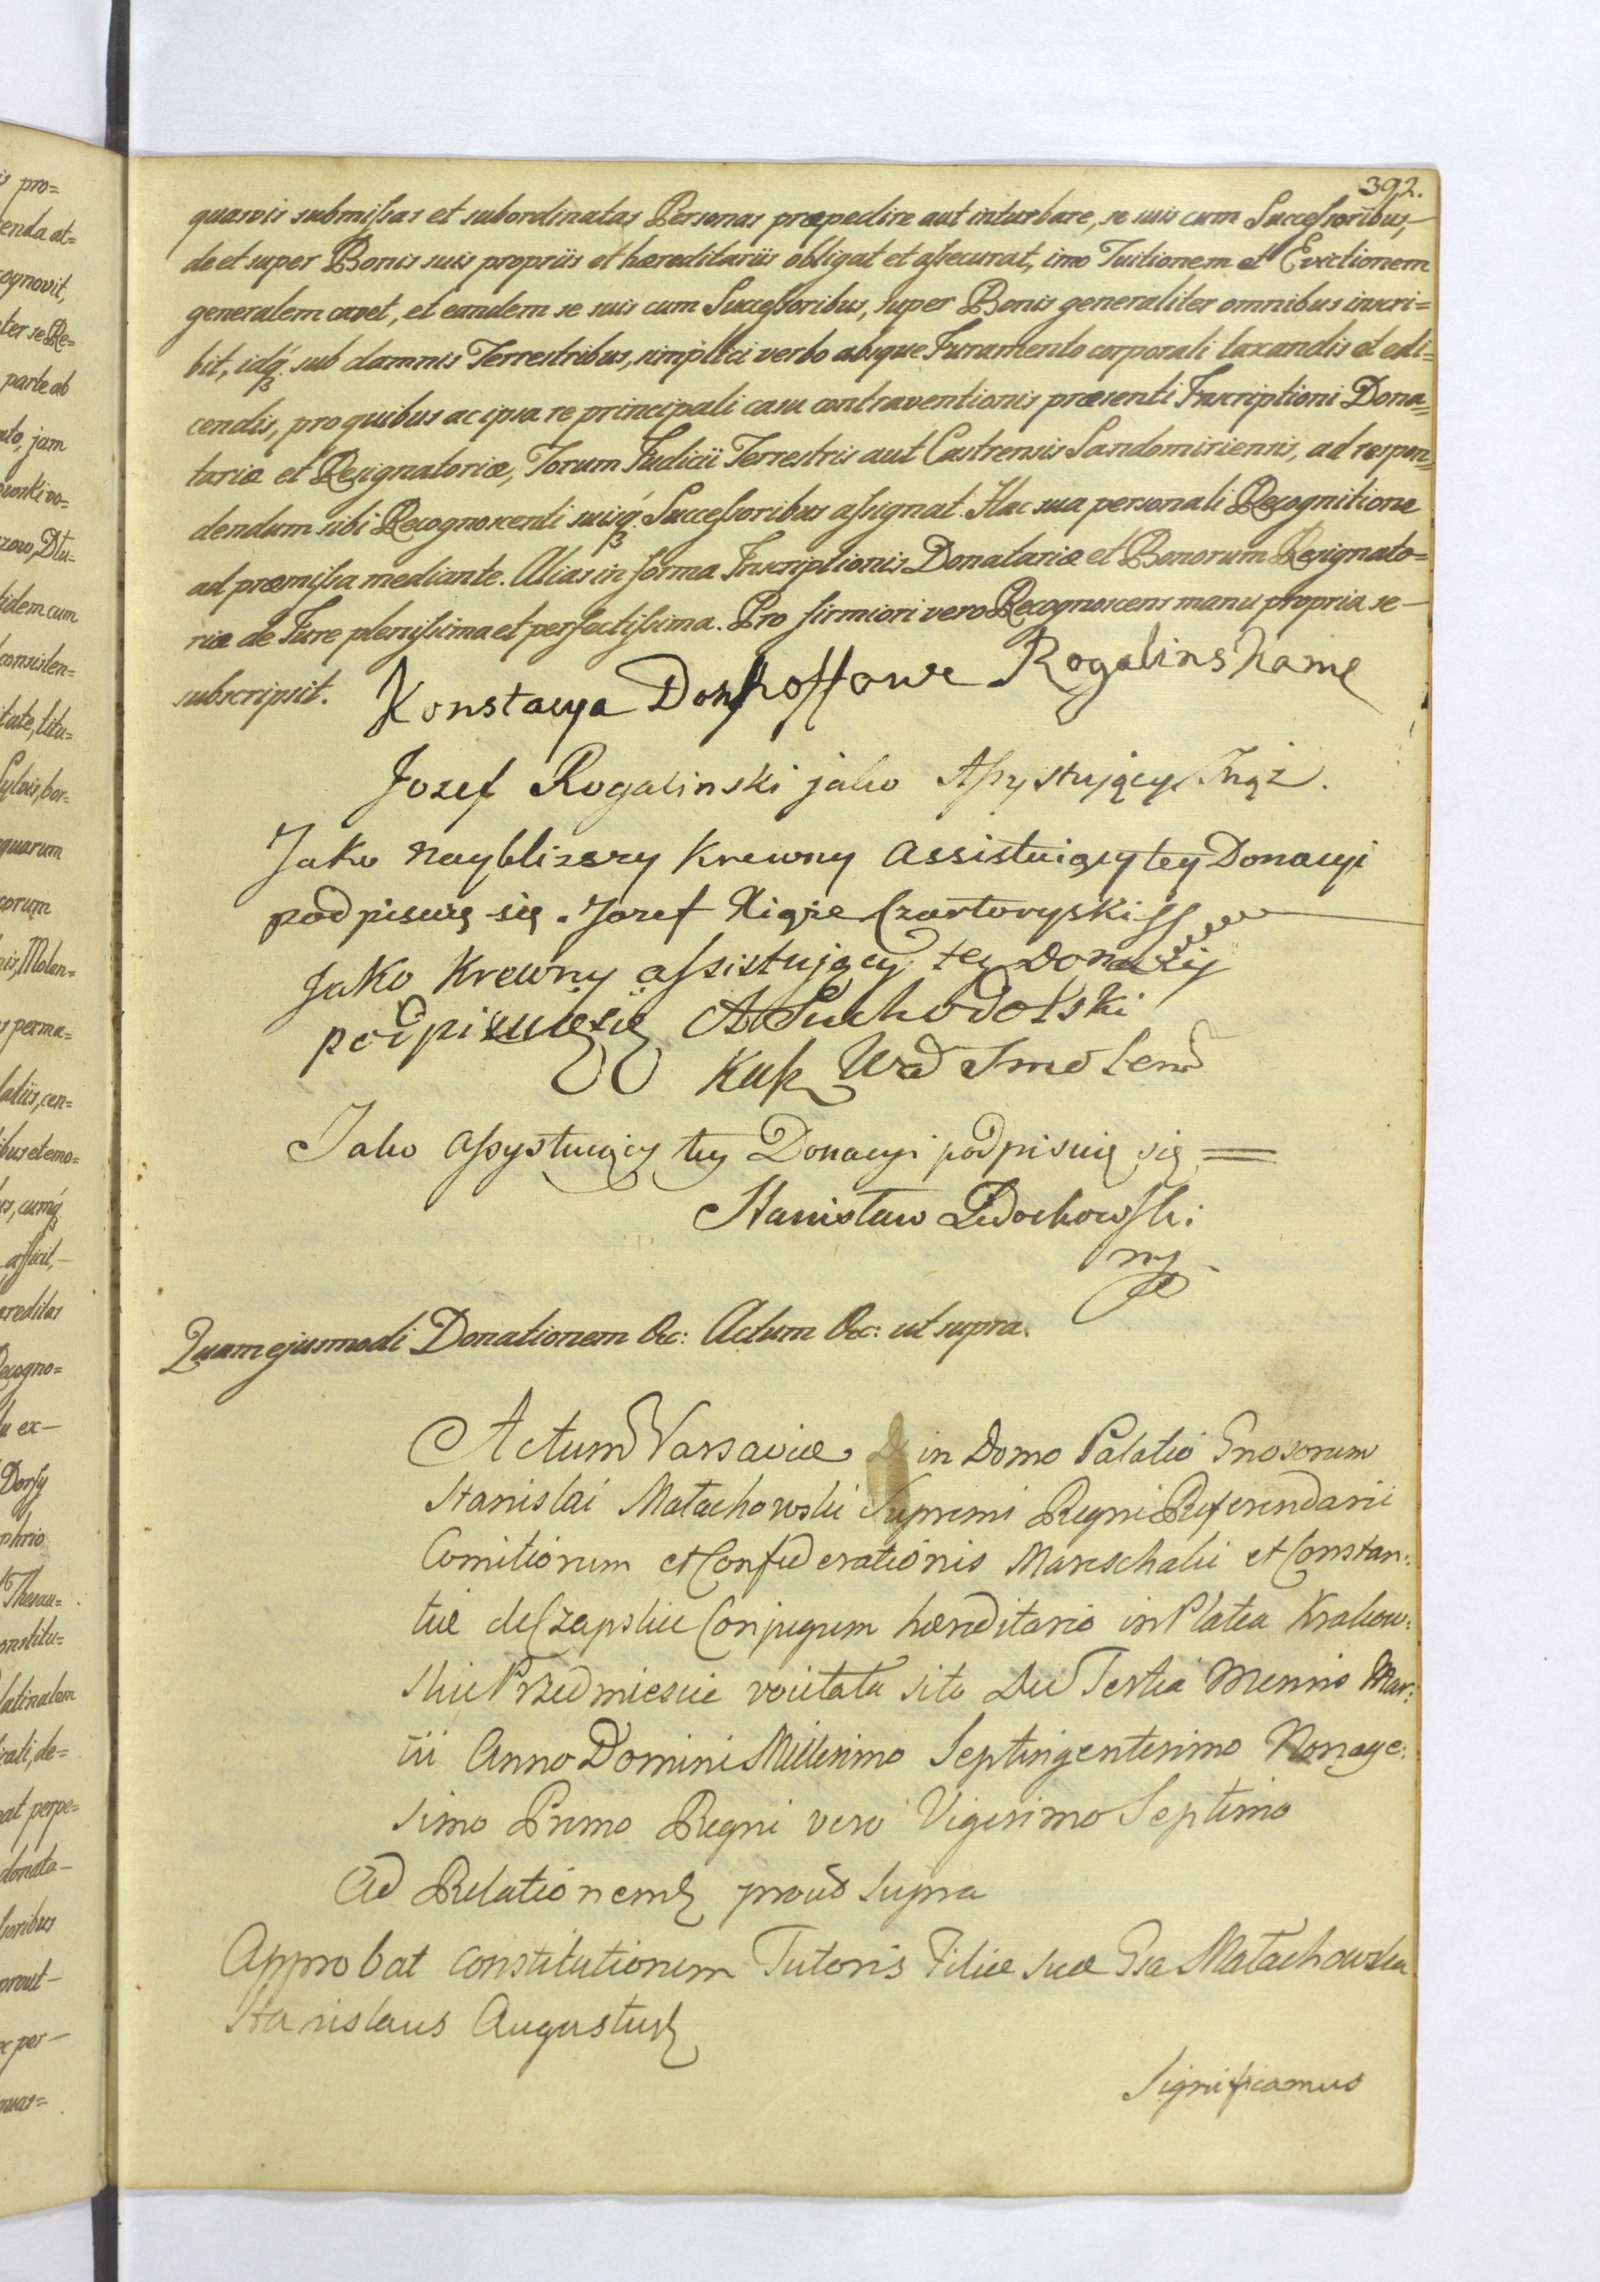 392.
quasvis submissas et subordinatas Personas præpedire aut inturbare, se suis cum Successoribus,—
de et super Bonis suis propriis et hæreditariis obligat et assecurat, imo Tuitionem et Evictionem
generalem cavet, et eandem se suis cum Successoribus, super Bonis generaliter omnibus inscri=
bit, idq; sub damnis Terrestribus, simplici verbo absque Juramento corporali taxandis et edi=
cendis, pro quibus ac ipsa re principali casu contraventionis præsenti Inscriptioni Dona=
tariæ et Resignatoriæ, Forum Judicii Terrestris aut Castrensis Sandomiriensis, ad respon=
dendum sibi Recognoscenti suisq; Successoribus assignat. Hac sua personali Recognitione
ad præmissa mediante. Alias in forma Inscriptionis Donatariæ et Bonorum Resignato=
riæ de Jure plenissima et perfectissima. Pro firmiori vero Recognoscens manu propria se—
subscripsit.
Konstacya Donhoffowe Rogalinskame
Jozef Rogalinski jako Assystujący Mąż.
Jako nayblizszy Krewny assistuiący tey Donacyi
podpisuię się. Jozef Xiąże Czartoryski
Jako Krewny assistujący tey Donacyi
podpisuię się A Suchodolski
Kasz Wd Smolens
Jako assystuiący tey Donacyi podpisuię się =
Stanisław Ledochowski
mp
Quam ejusmodi Donationem &c: Actum &c: ut supra.
Actum Varsaviæ in Domo Palatio Gnosorum
Stanislai Małachowski Supremi Regni Referendarii
Comitiorum et Confœderationis Mareschalci et Constan:
tiæ de Czapskie Conjugum hæreditario in Platea Krakow:
skie Przedmiescie vocitata sito Die Tertia Mensis Mar:
tii Anno Domini Millesimo Septingentesimo Nonage:
simo Primo Regni vero Vigesimo Septimo
Ad Relationem prout supra
Approbat constitutionem Tutoris Filiæ suæ Gsa Małachowska
Stanislaus Augustus
Significamus